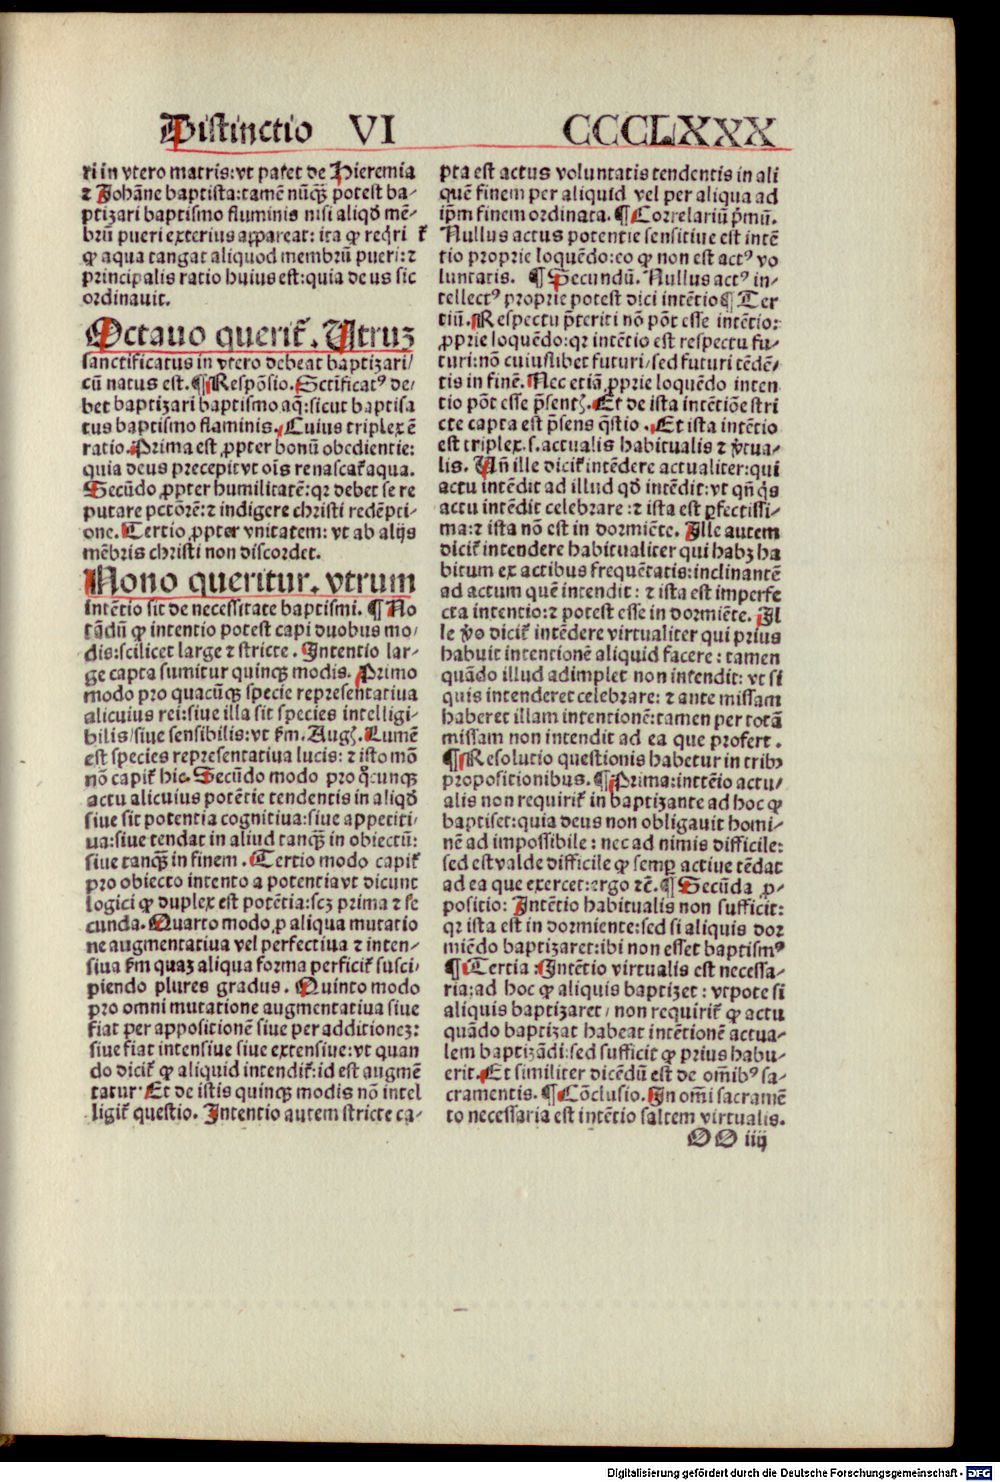 Distinctio VI CCCCLXXX
ri in vtero matris: vt patet de Hieremia
⁊ Johāne baptista: tamē nūqꝫ potest ba-
ptizari baptismo fluminis nisi aliqđ mē-
brū pueri exterius appareat: ita ꝙ reqͥri t᷑
ꝙ aqua tangat aliquod membrū pueri: ⁊
principalis ratio huius est: quia deus sic
ordinauit.
Octauo querit᷑. Utruꝫ
sanctificatus in vtero debeat baptizari/
cū natus est. ¶ Respōsio. Sctificatꝰ de/
bet baptizari baptismo aq̄: sicut baptisa
tus baptismo flaminis. Cuius triplex ē
ratio. Prima est ꝓpter bonū obedientie:
quia deus precepit vt oīs renascat᷑ aqua.
Secūdo ꝓpter humilitatē: qꝛ debet se re
putare pctōrē: ⁊ indigere christi redēpti-
one. Tertio ꝓpter vnitatem: vt ab alijs
mēbris christi non discordet.
Nono queritur. vtrum
intētio sit de necessitate baptismi. ¶ No
tādū ꝙ intentio potest capi duobus mo/
dis: scilicet large ⁊ stricte. Intentio lar-
ge capta sumitur quinqꝫ modis. Primo
modo pro quacūqꝫ specie representatiua
alicuius rei: siue illa sit species intelligi-
bilis/siue sensibilis: vt ẜm. Augꝭ. Lumē
est species representatiua lucis: ⁊ isto mō
nō capit᷑ hic. Secūdo modo pro qͦcunqꝫ
actu alicuius potētie tendentis in aliqđ
siue sit potentia cognitiua: siue appetiti/
ua: siue tendat in aliud tanqꝫ in obiectū:
siue tanqꝫ in finem. Tertio modo capit᷑
pro obiecto intento a potentia vt dicunt
logici ꝙ duplex est potētia: scꝫ prima ⁊ se
cunda. Quarto modo ꝓ aliqua mutatio
ne augmentatiua vel perfectiua ⁊ inten-
siua ẜm quaꝫ aliqua forma perficit᷑ susci/
piendo plures gradus. Quinto modo
pro omni mutatione augmentatiua siue
fiat per appositionē siue per additioneꝫ:
siue fiat intensiue siue extensiue: vt quan
do dicit᷑ ꝙ aliquid intendit᷑: id est augmē
tatur. Et de istis quinqꝫ modis nō intel
ligit᷑ questio. Intentio autem stricte ca-
pta est actus voluntatis tendentis in ali
quē finem per aliquid vel per aliqua ad
ip̄m finem ordinata. ¶ Correlariū pͥmū.
Nullus actus potentie sensitiue est intē
tio proprie loquēdo: eo ꝙ non est actꝰ vo
luntatis. ¶ Secundū. Nullus actꝰ in-
tellectꝰ proprie potest dici intētio ¶ Ter
tiū. Respectu p̄teriti nō pōt esse intētio:
ꝓprie loquēdo: qꝛ intētio est respectu fu-
turi: nō cuiuslibet futuri/sed futuri tēdē-
tis in finē. Nec etiā ꝓprie loquēdo inten
tio pōt esse p̄sentꝭ. Et de ista intētiōe stri
cte capta est p̄sens q̄stio. Et ista intētio
est triplex. s. actualis habitualis ⁊ v̓tua-
lis. Uñ ille dicit᷑ intēdere actualiter: qui
actu intēdit ad illud qđ intēdit: vt qñ qͥs
actu intēdit celebrare: ⁊ ista est ꝑfectissi-
ma: ⁊ ista nō est in dormiēte. Ille autem
dicit᷑ intendere habitualiter qui habꝫ ha
bitum ex actibus frequētatis: inclinantē
ad actum quē intendit: ⁊ ista est imperfe
cta intentio: ⁊ potest esse in dormiēte. Il
le v̓o dicit᷑ intēdere virtualiter qui prius
habuit intentionē aliquid facere: tamen
quādo illud adimplet non intendit: vt si
quis intenderet celebrare: ⁊ ante missam
haberet illam intentionē: tamen per totā
missam non intendit ad ea que profert.
¶ Resolutio questionis habetur in tribꝰ
propositionibus. ¶ Prima: inttēio actu-
alis non requirit᷑ in baptizante ad hoc ꝙ
baptiset: quia deus non obligauit homi-
nē ad impossibile: nec ad nimis difficile:
sed est valde difficile ꝙ semꝑ actiue tēdat
ad ea que exercet: ergo ⁊c̄. ¶ Secūda ꝓ-
positio: Intētio habitualis non sufficit:
qꝛ ista est in dormiente: sed si aliquis dor
miēdo baptizaret: ibi non esset baptismꝰ
¶ Tertia: Intētio virtualis est necessa-
ria: ad hoc ꝙ aliquis baptizet: vtpote si
aliquis baptizaret/non requirit᷑ ꝙ actu
quādo baptizat habeat intētionē actua-
lem baptizādi: sed sufficit ꝙ prius habu-
erit. Et similiter dicēdū est de om̄ibꝰ sa-
cramentis. ¶ Cōclusio. In om̄i sacramē
to necessaria est intētio saltem virtualis.
OO iiij
Digitalisierung gefördert durch die Deutsche Forschungsgemeinschaft - DFG